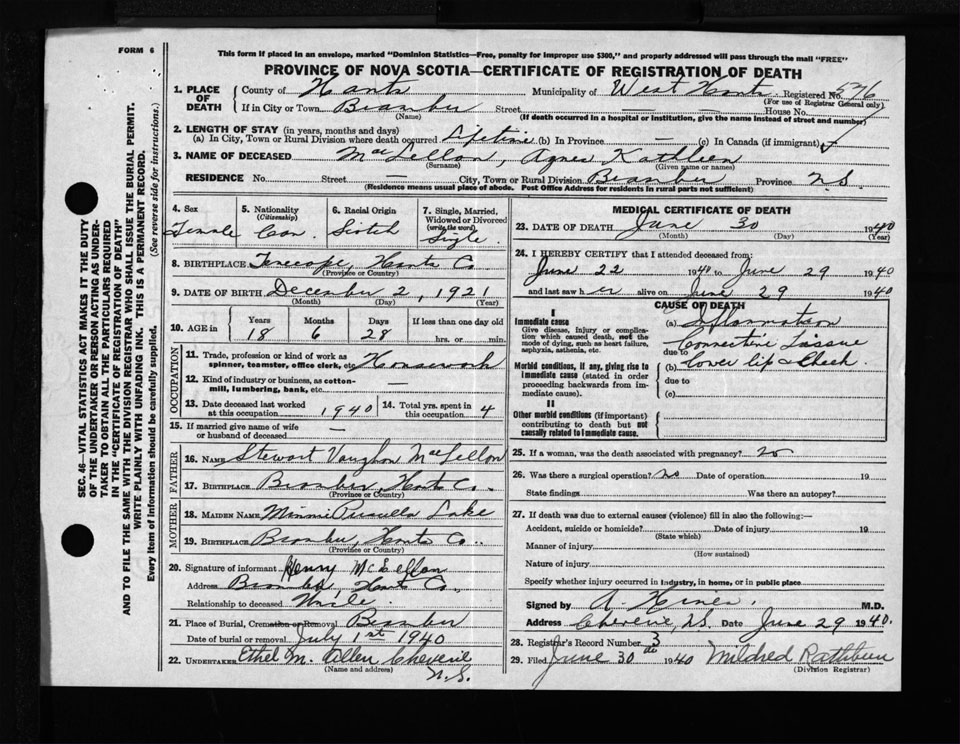 FORM 6
This form if placed in an envelope, marked "Dominion Statistics—Free, penalty for improper use $300," and properly addressed will pass through the mail "FREE"
PROVINCE OF NOVA SCOTIA—CERTIFICATE OF REGISTRATION OF DEATH
SEC. 46—VITAL STATISTICS ACT MAKES IT THE DUTY
OF THE UNDERTAKER OR PERSON ACTING AS UNDER-
TAKER TO OBTAIN ALL THE PARTICULARS REQUIRED
IN THE "CERTIFICATE OF REGISTRATION OF DEATH"
AND TO FILE THE SAME WITH THE DIVISION REGISTRAR WHO SHALL ISSUE THE BURIAL PERMIT.
WRITE PLAINLY WITH UNFADING INK. THIS IS A PERMANENT RECORD.
Every item of information should be carefully supplied. (See reverse side for instructions.)
1. PLACE OF DEATH
County of Hants Municipality of West Hants Registered No. 576
(For use of Registrar General only)
If in City or Town Bramber Street House No.
(Name) (If death occurred in a hospital or institution, give the name instead of street and number)
2. LENGTH OF STAY (in years, months and days)
(a) In City, Town or Rural Division where death occurred Lifetime (b) In Province — (c) In Canada (if immigrant)
3. NAME OF DECEASED MacLellan, Agnes Kathleen
(Surname) (Given name or names)
RESIDENCE No. Street — City, Town or Rural Division Bramber Province N.S.
(Residence means usual place of abode. Post Office Address for residents in rural parts not sufficient)
4. Sex Female
5. Nationality (Citizenship) Can.
6. Racial Origin Scotch
7. Single, Married, Widowed or Divorced (write the word) Single
8. BIRTHPLACE Hants Co.
(Province or Country)
9. DATE OF BIRTH December 2, 1921
(Month) (Day) (Year)
10. AGE in Years 18 Months 6 Days 28 If less than one day old hrs. or min.
OCCUPATION
11. Trade, profession or kind of work as spinner, teamster, office clerk, etc. Housework
12. Kind of industry or business, as cotton-mill, lumbering, bank, etc.
13. Date deceased last worked at this occupation 1940
14. Total yrs. spent in this occupation 4
15. If married give name of wife or husband of deceased —
FATHER
16. NAME Stewart Vaughn MacLellan
17. BIRTHPLACE Bramber, Hants Co.
(Province or Country)
MOTHER
18. MAIDEN NAME Minnie Priscilla Lake
19. BIRTHPLACE Bramber, Hants Co.
(Province or Country)
20. Signature of informant Henry McLellan
Address Bramber, Hants Co.
Relationship to deceased Uncle
21. Place of Burial, Cremation or Removal Bramber
Date of burial or removal July 1st 1940
22. UNDERTAKER Ethel M. Allen Cheverie
(Name and address) N.S.
MEDICAL CERTIFICATE OF DEATH
23. DATE OF DEATH June 30 1940
(Month) (Day) (Year)
24. I HEREBY CERTIFY that I attended deceased from:
June 22 1940 to June 29 1940
and last saw her alive on June 29 1940
CAUSE OF DEATH
I
Immediate cause
Give disease, injury or complication which caused death, not the mode of dying, such as heart failure, asphyxia, asthenia, etc.
(a) Inflammation
Connective Tissue
due to
Morbid conditions, if any, giving rise to immediate cause (stated in order proceeding backwards from immediate cause).
(b) lower lip & Cheek.
due to
(c)
II
Other morbid conditions (if important) contributing to death but not causally related to immediate cause.
25. If a woman, was the death associated with pregnancy? no
26. Was there a surgical operation? no Date of operation 19
State findings Was there an autopsy?
27. If death was due to external causes (violence) fill in also the following:—
Accident, suicide or homicide? Date of injury 19
(State which)
Manner of injury
(How sustained)
Nature of injury
Specify whether injury occurred in industry, in home, or in public place
Signed by A. M.D.
Address Cheverie, N.S. Date June 29 1940.
28. Registrar's Record Number 3
29. Filed June 30th 1940 Mildred Rathbun
(Division Registrar)